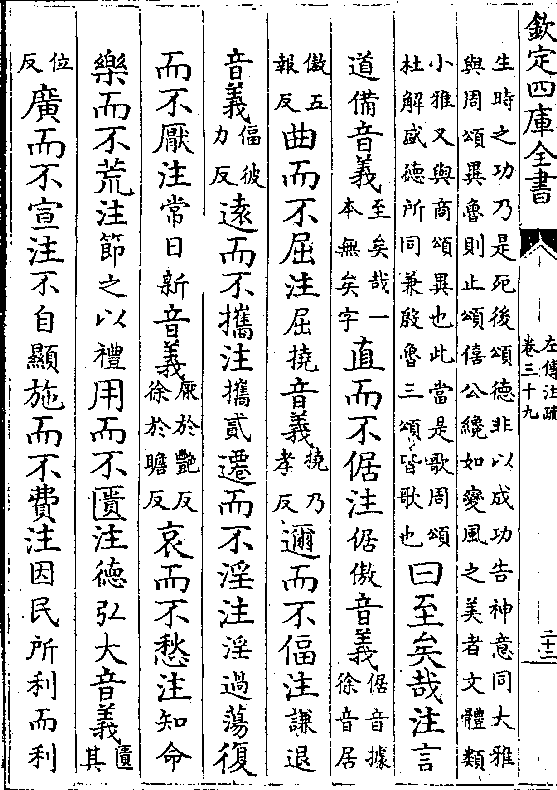 欽定四庫全書
左傳注疏
卷三十九
二十二
生時之功乃是死後頌德非以成功告神意同大雅
與周頌異魯則止頌僖公纔如變風之美者文體類
小雅又與商頌異也此當是歌周頌
杜解盛德所同兼殷魯三頌皆歌也
曰至矣哉注言
道備音義
至矣哉一
本無矣字
直而不倨注倨傲音義
倨音據
徐音居
傲五
報反
曲而不屈注屈撓音義
撓乃
孝反
邇而不偪注謙退
音義
偪彼
力反
遠而不攜注攜貳遷而不淫注淫過蕩復
而不厭注常日新音義
厭於艷反
徐於贍反
哀而不愁注知命
樂而不荒注節之以禮用而不匱注德弘大音義
匱
其
位
反
廣而不宣注不自顯施而不費注因民所利而利